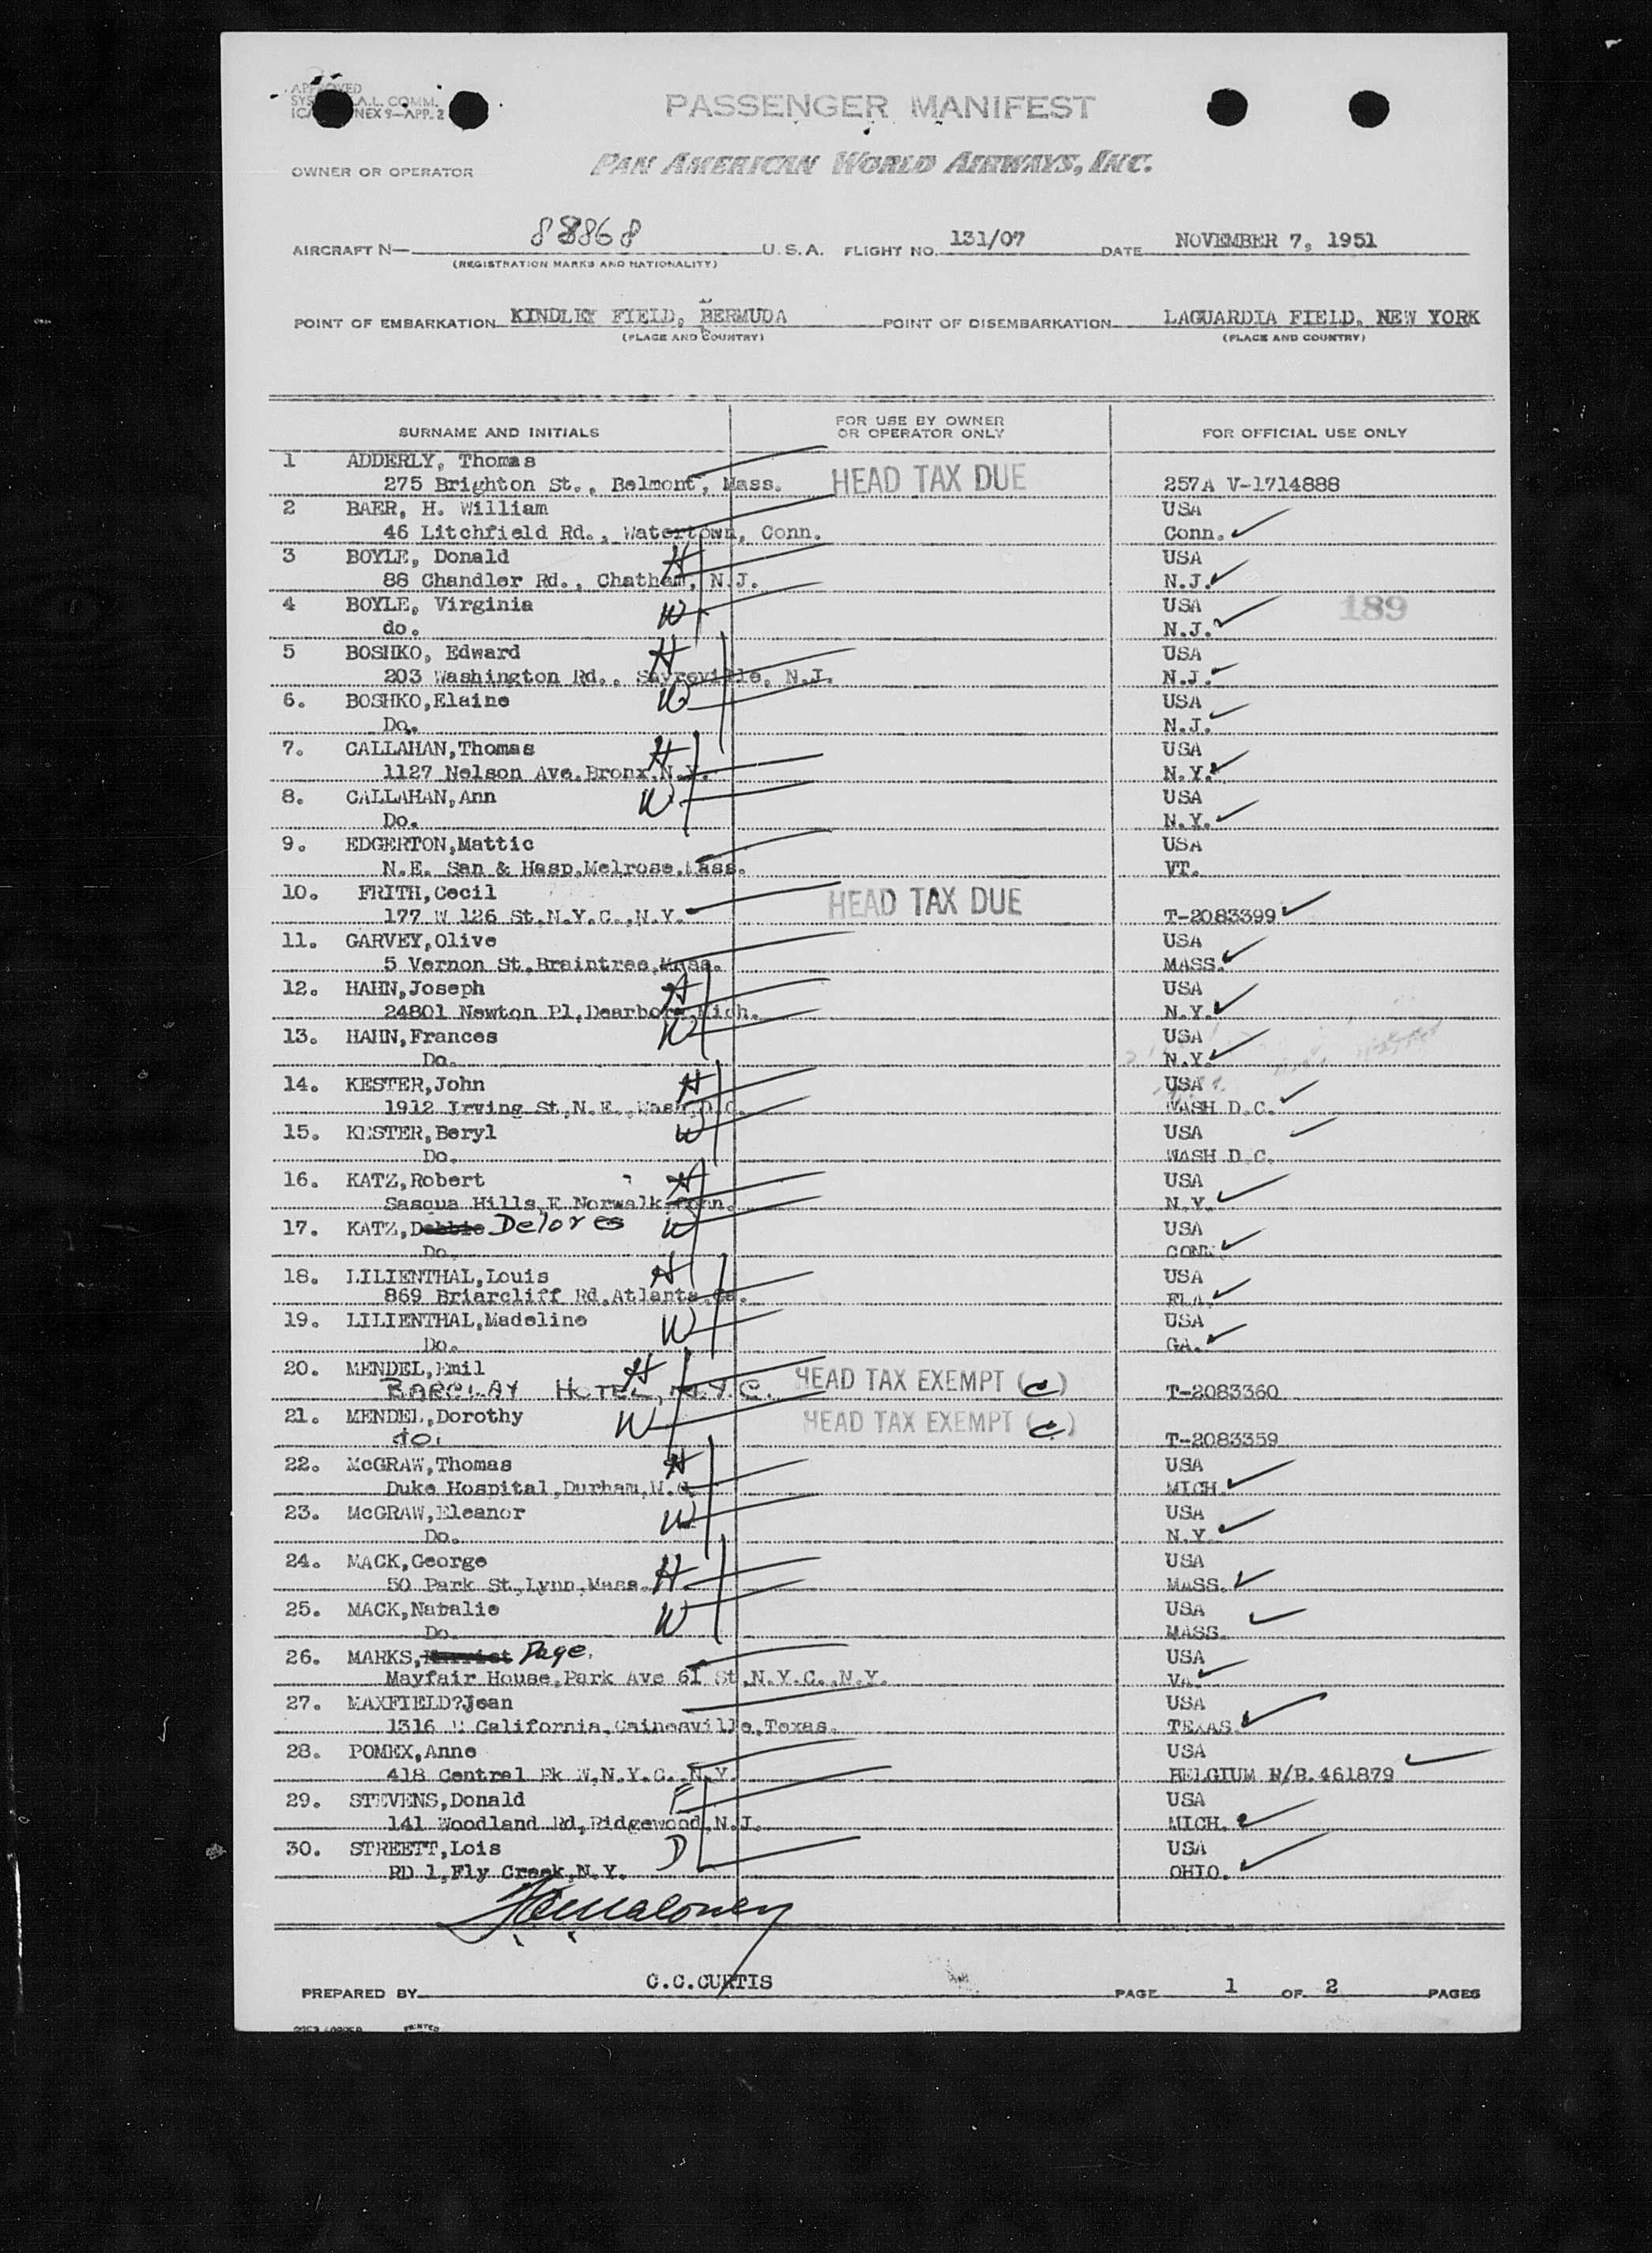 APPROVED
A.L. COMM.
NEX 9—APP. 2
PASSENGER MANIFEST
OWNER OR OPERATOR PAN AMERICAN WORLD AIRWAYS, INC.
AIRCRAFT N— 88868 U.S.A. FLIGHT NO. 131/07 DATE NOVEMBER 7, 1951
(REGISTRATION MARKS AND NATIONALITY)
POINT OF EMBARKATION KINDLEY FIELD, BERMUDA POINT OF DISEMBARKATION LAGUARDIA FIELD, NEW YORK
(PLACE AND COUNTRY) (PLACE AND COUNTRY)
SURNAME AND INITIALS FOR USE BY OWNER OR OPERATOR ONLY FOR OFFICIAL USE ONLY
1 ADDERLY, Thomas
275 Brighton St., Belmont, Mass. HEAD TAX DUE 257A V-1714888
2 BAER, H. William USA
46 Litchfield Rd., Watertown, Conn. Conn.
3 BOYLE, Donald H USA
88 Chandler Rd., Chatham, N.J. N.J.
4 BOYLE, Virginia W USA 189
do. N.J.
5 BOSHKO, Edward H USA
203 Washington Rd., Sayreville, N.J. N.J.
6. BOSHKO,Elaine W USA
Do. N.J.
7. CALLAHAN,Thomas H USA
1127 Nelson Ave.Bronx,N.Y. N.Y.
8. CALLAHAN,Ann W USA
Do. N.Y.
9. EDGERTON,Mattie USA
N.E. San & Hosp,Melrose,Mass. VT.
10. FRITH,Cecil HEAD TAX DUE
177 W 126 St,N.Y.C.,N.Y. T-2083399
11. GARVEY,Olive USA
5 Vernon St,Braintree,Mass. MASS.
12. HAHN,Joseph H USA
24801 Newton Pl,Dearborn,Mich. N.Y.
13. HAHN,Frances W USA
Do. N.Y.
14. KESTER,John H USA
1912 Irving St,N.E.,Wash,D.C. WASH D.C.
15. KESTER,Beryl W USA
Do. WASH D.C.
16. KATZ,Robert H USA
Sasqua Hills,E Norwalk,Conn. N.Y.
17. KATZ,Debbie Delores W USA
Do. CONN.
18. LILIENTHAL,Louis H USA
869 Briarcliff Rd,Atlanta,Ga. FLA.
19. LILIENTHAL,Madeline W USA
Do. GA.
20. MENDEL,Emil H HEAD TAX EXEMPT (c)
BARCLAY HOTEL, N.Y.C. T-2083360
21. MENDEL,Dorothy W HEAD TAX EXEMPT (c)
do. T-2083359
22. McGRAW,Thomas H USA
Duke Hospital,Durham,N.C. MICH.
23. McGRAW,Eleanor W USA
Do. N.Y.
24. MACK,George USA
50 Park St,Lynn,Mass. H MASS.
25. MACK,Natalie W USA
Do. MASS.
26. MARKS, Page. USA
Mayfair House,Park Ave 61 St,N.Y.C.,N.Y. VA.
27. MAXFIELD?Jean USA
1316 E California,Gainesville,Texas. TEXAS.
28. POMEX,Anne USA
418 Central Pk W,N.Y.C.,N.Y. BELGIUM R/B.461879
29. STEVENS,Donald F USA
141 Woodland Rd,Ridgewood,N.J. MICH.
30. STREETT,Lois D USA
RD 1,Fly Creek,N.Y. OHIO.
PREPARED BY C.C.CURTIS PAGE 1 OF 2 PAGES
PRINTED